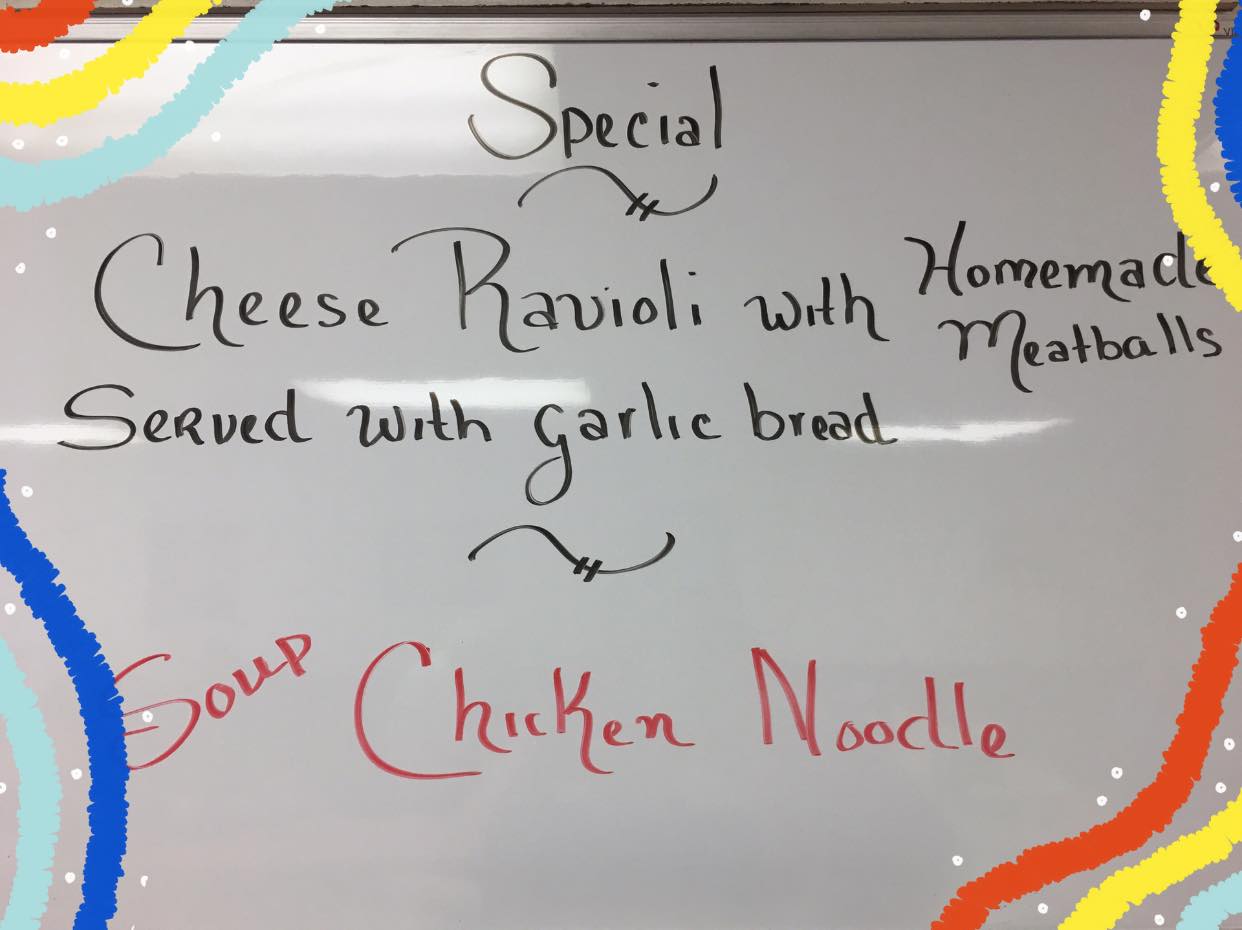 Special
Cheese Ravioli with Homemade
Meatballs
Served with garlic bread
Soup Chicken Noodle